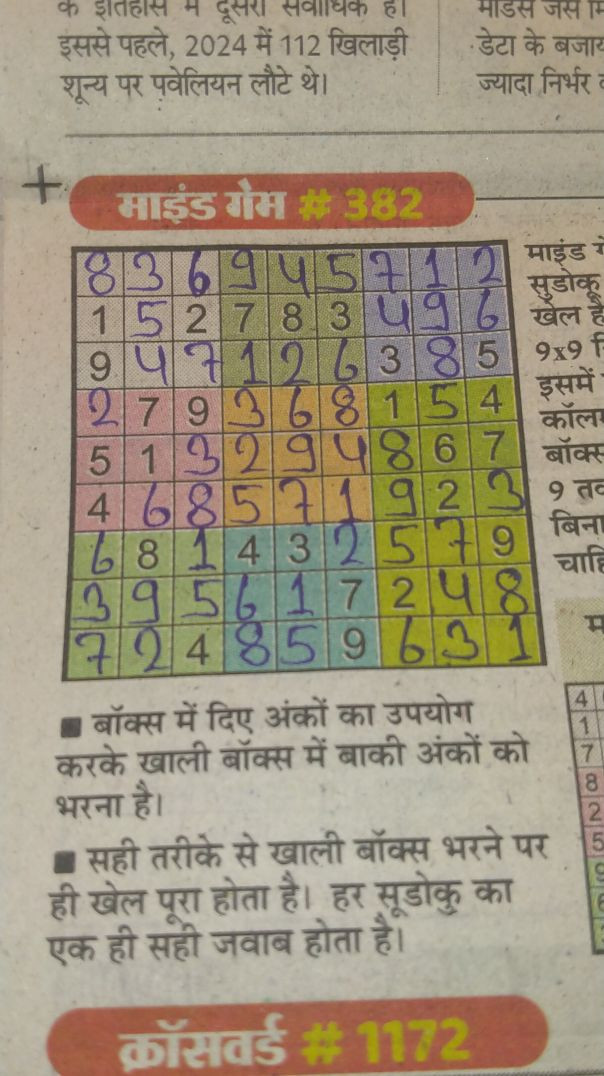 के इतिहास में दूसरा सर्वाधिक है।
इससे पहले, 2024 में 112 खिलाड़ी
शून्य पर पवेलियन लौटे थे।
डेटा के बजाय
ज्यादा निर्भर
+
माइंड गेम # 382
8 3 6 9 4 5 7 1 2
1 5 2 7 8 3 4 9 6
9 4 7 1 2 6 3 8 5
2 7 9 3 6 8 1 5 4
5 1 3 2 9 4 8 6 7
4 6 8 5 7 1 9 2 3
6 8 1 4 3 2 5 7 9
3 9 5 6 1 7 2 4 8
7 2 4 8 5 9 6 3 1
माइंड
सुडोकू
खेल
9x9
इसमें
9
बिना
■ बॉक्स में दिए अंकों का उपयोग
करके खाली बॉक्स में बाकी अंकों को
भरना है।
■ सही तरीके से खाली बॉक्स भरने पर
ही खेल पूरा होता है। हर सूडोकु का
एक ही सही जवाब होता है।
4
1
7
8
2
5
क्रॉसवर्ड # 1172